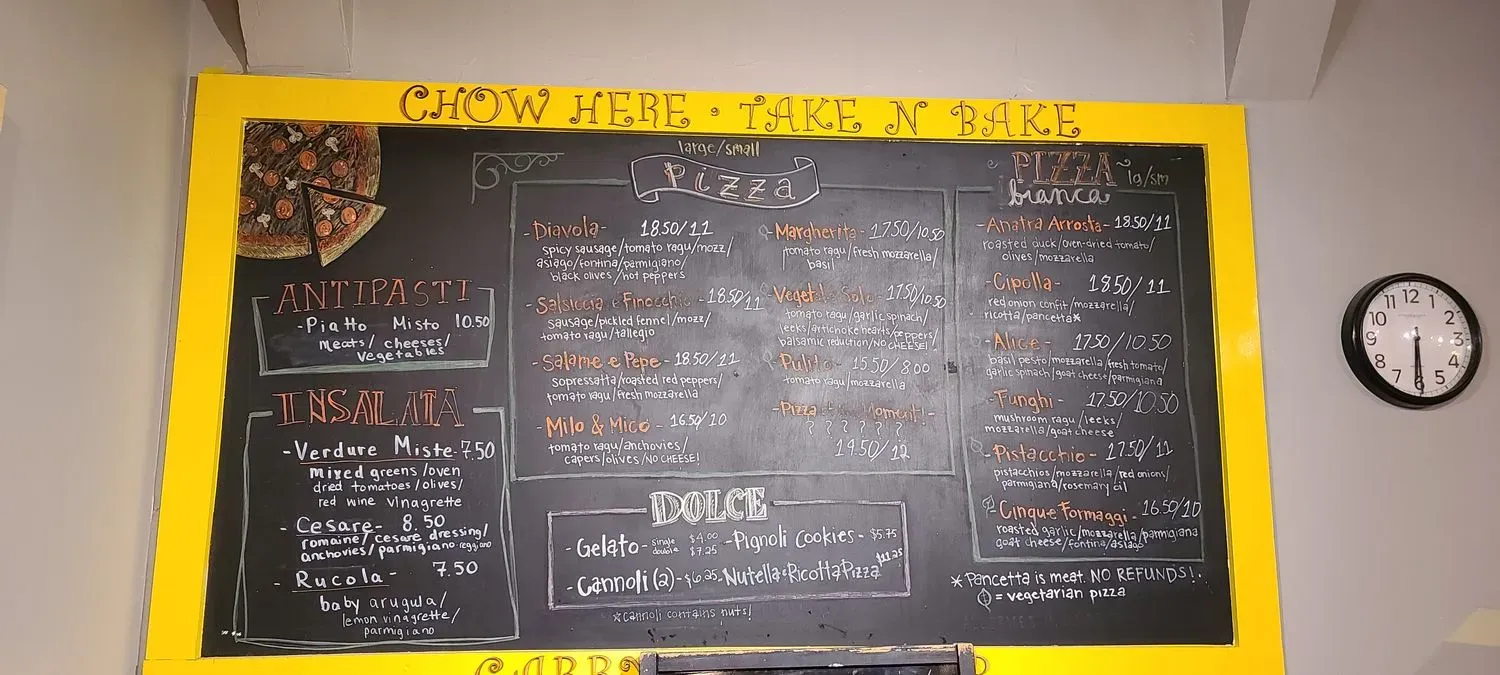 CHOW HERE • TAKE N BAKE
ANTIPASTI
-Piatto Misto 10.50
meats/cheeses/
vegetables
INSALATA
-Verdure Miste-7.50
mixed greens/oven
dried tomatoes/olives/
red wine vinagrette
- Cesare- 8.50
romaine/cesare dressing/
anchovies/parmigiano reggiano
- Rucola- 7.50
baby arugula/
lemon vinagrette/
parmigiano
large/small
Pizza
-Diavola- 18.50/11
spicy sausage/tomato ragu/mozz/
asiago/fontina/parmigiano/
black olives/hot peppers
-Salsiccia e Finocchio-18.50/11
sausage/pickled fennel/mozz/
tomato ragu/tallegio
-Salame e Pepe-18.50/11
sopressatta/roasted red peppers/
tomato ragu/fresh mozzarella
-Milo & Mico-16.50/10
tomato ragu/anchovies/
capers/olives/NO CHEESE!
-Margherita-17.50/10.50
tomato ragu/fresh mozzarella/
basil
Solo-17.50/10.50
tomato ragu/garlic spinach/
leeks/artichoke hearts/peppers/
balsamic reduction/NO CHEESE!
-Pulito- 15.50/8.00
tomato ragu/mozzarella
-Pizza Moment!-
? ? ? ? ? ?
19.50/12
DOLCE
-Gelato- single $4.00
double $7.25
-Pignoli Cookies-$5.75
-Cannoli (2)-$6.25
-Nutella & Ricotta Pizza
*cannoli contains nuts!
PIZZA lg/sm
bianca
-Anatra Arrosta-18.50/11
roasted duck/oven-dried tomato/
olives/mozzarella
-Cipolla- 18.50/11
red onion confit/mozzarella/
ricotta/pancetta*
-Alice- 17.50/10.50
basil pesto/mozzarella/fresh tomato/
garlic spinach/goat cheese/parmigiana
-Funghi- 17.50/10.50
mushroom ragu/leeks/
mozzarella/goat cheese
-Pistacchio- 17.50/11
pistacchios/mozzarella/red onions/
parmigiana/rosemary oil
-Cinque Formaggi-16.50/10
roasted garlic/mozzarella/parmigiana
goat cheese/fontina/asiago
*Pancetta is meat. NO REFUNDS!
= vegetarian pizza
12
1
2
3
4
5
6
7
8
9
10
11